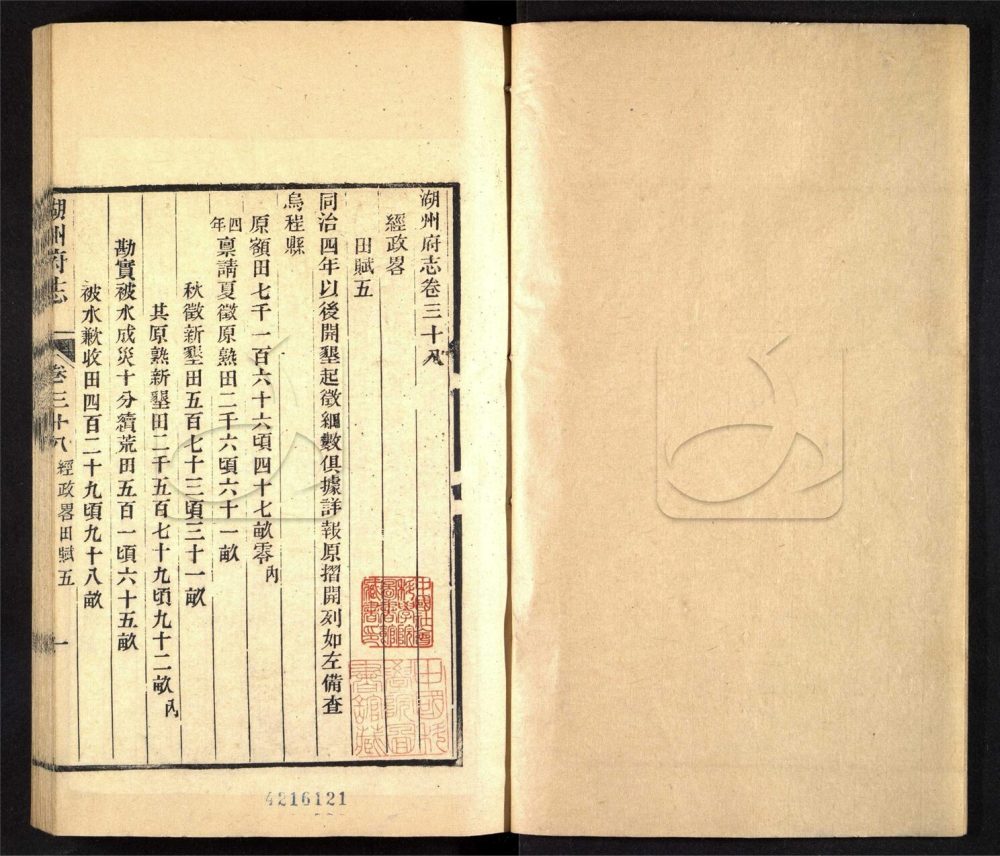 湖州府志卷三十八
經政畧
田賦五
同治四年以後開墾起徵細數俱據詳報原摺開列如左備查
烏程縣
原額田七千一百六十六頃四十七畝零內
四年稟請夏徵原熟田二千六頃六十一畝
秋徵新墾田五百七十三頃三十一畝
其原熟新墾田二千五百七十九頃九十二畝內
勘實被水成災十分續荒田五百一頃六十五畝
被水歉收田四百二十九頃九十八畝
湖州府志 卷三十八 經政畧田賦五 一
中國社會科學院圖書館藏書印
中國科學院圖書館藏
4216121